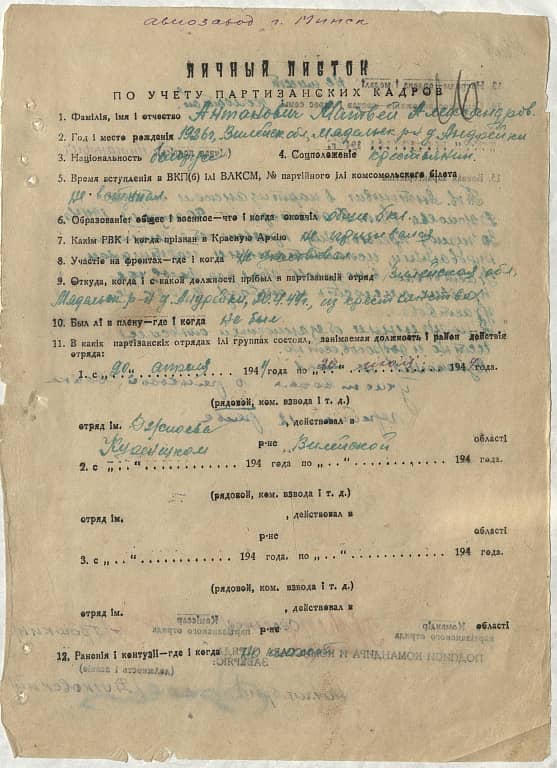 авиозавод г. Минск
ЛИЧНЫЙ ЛИСТОК
ПО УЧЕТУ ПАРТИЗАНСКИХ КАДРОВ
1. Фамілія, імя і отчество Антанович Матвей Александров.
2. Год і место рожденія 1926 г. Вилейск обл, Мадальск р-н д. Андрейки
3. Національность белорус 4. Соцположеніе крестьянин.
5. Время вступленія в ВКП(б) ілі ВЛКСМ, № партійного ілі комсомольского білета
не вступал.
6. Образованіе: общее і военное—что і когда окончіл
7. Какім РВК і когда прізван в Красную Армію не призывался
8. Участіе на фронтах—где і когда не участвовал
9. Откуда, когда і с какой должності прібыл в партізанскій отряд Вилейская обл.
Мадальск р-н д. Андрейки, 20.4.44 г., из крестьянства
10. Был лі в плену—где і когда не был
11. В какіх партізанскіх отрядах ілі группах состоял, занімаемая должность і район действія
отряда:
1. с „20“ апреля 1944 года по 194 года.
(рядовой, ком. взвода і т. д.)
отряд ім. , действовал в
р-не Вилейской области
2. с „..“ 194 года по „..“ 194 года.
(рядовой, ком. взвода і т. д.)
отряд ім. , действовал в
р-не області
3. с „..“ 194 года. по „..“ 194 года.
(рядовой, ком. взвода і т. д.)
отряд ім. , действовал в
р-не області
12. Раненія і контузіі—где і когда